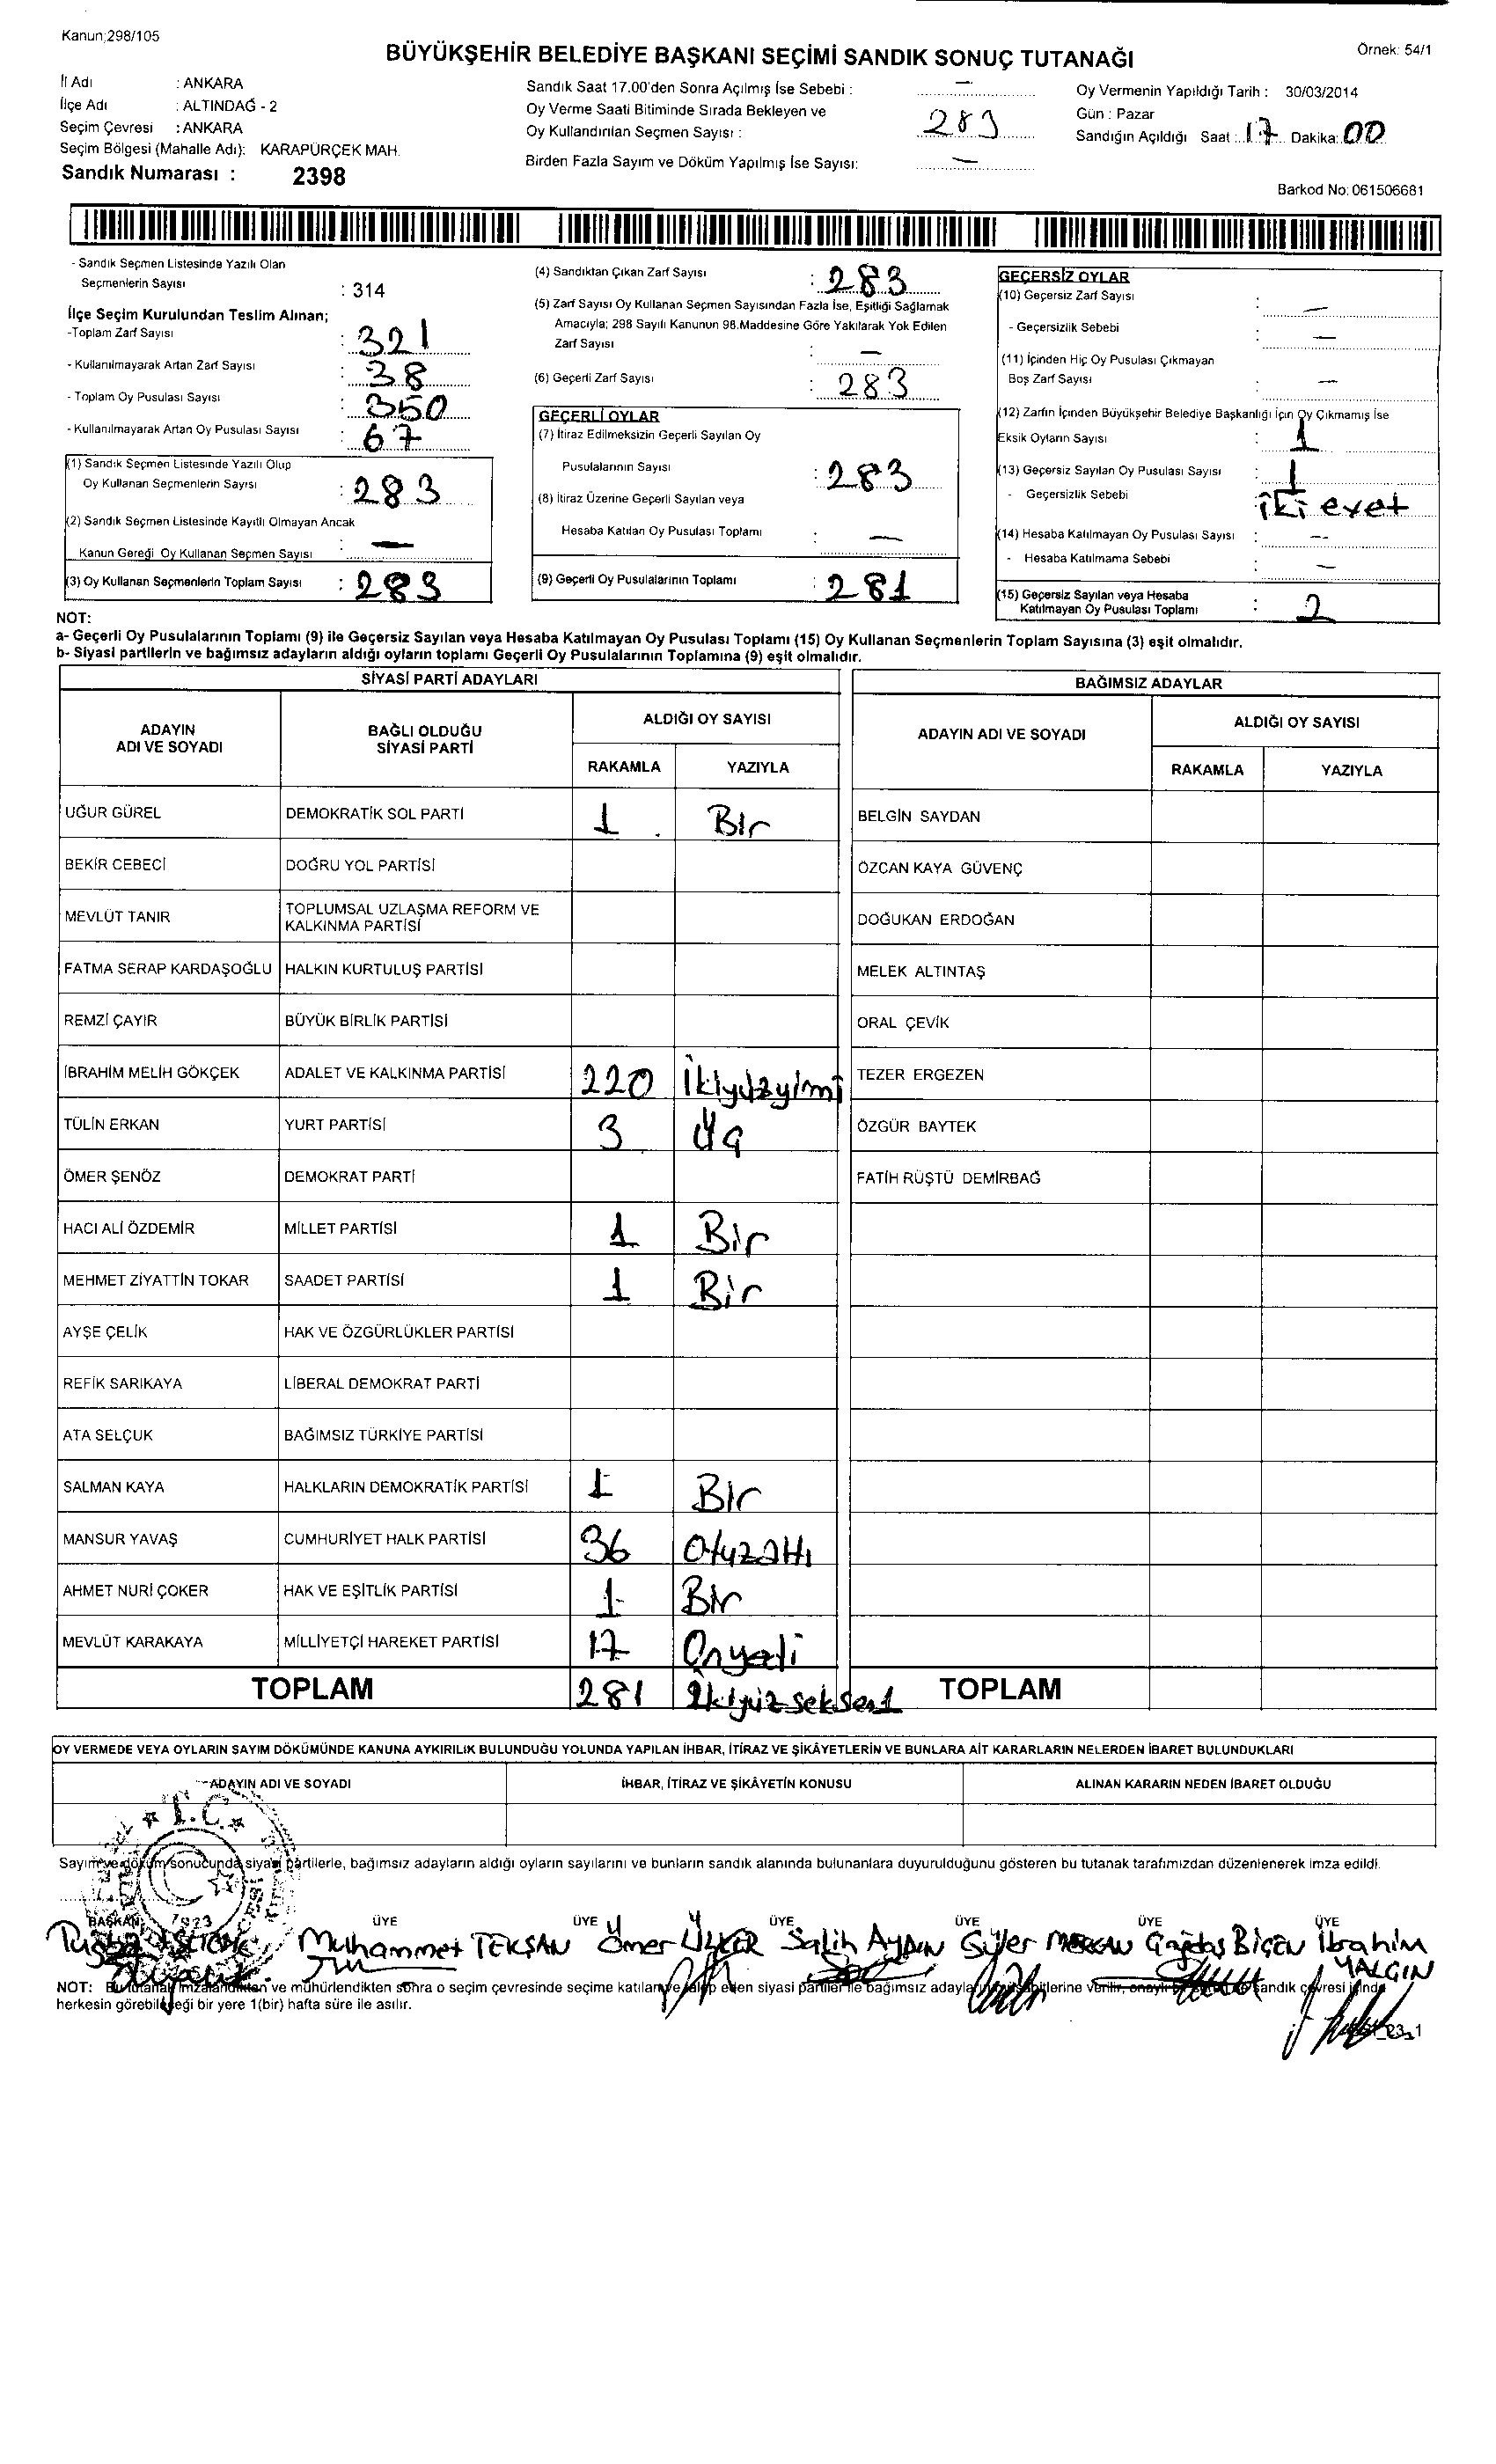 Kanun;298/105
Örnek: 54/1
BÜYÜKŞEHİR BELEDİYE BAŞKANI SEÇİMİ SANDIK SONUÇ TUTANAĞI
İl Adı : ANKARA
İlçe Adı : ALTINDAĞ - 2
Seçim Çevresi : ANKARA
Seçim Bölgesi (Mahalle Adı): KARAPÜRÇEK MAH.
Sandık Numarası : 2398
Sandık Saat 17.00'den Sonra Açılmış İse Sebebi : —
Oy Verme Saati Bitiminde Sırada Bekleyen ve
Oy Kullandırılan Seçmen Sayısı : 283
Birden Fazla Sayım ve Döküm Yapılmış İse Sayısı: —
Oy Vermenin Yapıldığı Tarih : 30/03/2014
Gün : Pazar
Sandığın Açıldığı Saat : 17 Dakika: 00
Barkod No: 061506681
- Sandık Seçmen Listesinde Yazılı Olan
Seçmenlerin Sayısı : 314
İlçe Seçim Kurulundan Teslim Alınan;
-Toplam Zarf Sayısı : 321
- Kullanılmayarak Artan Zarf Sayısı : 38
- Toplam Oy Pusulası Sayısı : 350
- Kullanılmayarak Artan Oy Pusulası Sayısı : 67
(1) Sandık Seçmen Listesinde Yazılı Olup
Oy Kullanan Seçmenlerin Sayısı : 283
(2) Sandık Seçmen Listesinde Kayıtlı Olmayan Ancak
Kanun Gereği Oy Kullanan Seçmen Sayısı : —
(3) Oy Kullanan Seçmenlerin Toplam Sayısı : 283
(4) Sandıktan Çıkan Zarf Sayısı : 283
(5) Zarf Sayısı Oy Kullanan Seçmen Sayısından Fazla İse, Eşitliği Sağlamak
Amacıyla; 298 Sayılı Kanunun 98.Maddesine Göre Yakılarak Yok Edilen
Zarf Sayısı : —
(6) Geçerli Zarf Sayısı : 283
GEÇERLİ OYLAR
(7) İtiraz Edilmeksizin Geçerli Sayılan Oy
Pusulalarının Sayısı : 283
(8) İtiraz Üzerine Geçerli Sayılan veya
Hesaba Katılan Oy Pusulası Toplamı : —
(9) Geçerli Oy Pusulalarının Toplamı : 281
GEÇERSİZ OYLAR
(10) Geçersiz Zarf Sayısı : —
- Geçersizlik Sebebi : —
(11) İçinden Hiç Oy Pusulası Çıkmayan
Boş Zarf Sayısı : —
(12) Zarfın İçinden Büyükşehir Belediye Başkanlığı İçin Oy Çıkmamış İse
Eksik Oyların Sayısı : 1
(13) Geçersiz Sayılan Oy Pusulası Sayısı : 1
- Geçersizlik Sebebi iki evet
(14) Hesaba Katılmayan Oy Pusulası Sayısı : —
- Hesaba Katılmama Sebebi : —
(15) Geçersiz Sayılan veya Hesaba
Katılmayan Oy Pusulası Toplamı : 2
NOT:
a- Geçerli Oy Pusulalarının Toplamı (9) ile Geçersiz Sayılan veya Hesaba Katılmayan Oy Pusulası Toplamı (15) Oy Kullanan Seçmenlerin Toplam Sayısına (3) eşit olmalıdır.
b- Siyasi partilerin ve bağımsız adayların aldığı oyların toplamı Geçerli Oy Pusulalarının Toplamına (9) eşit olmalıdır.
SİYASİ PARTİ ADAYLARI
ADAYIN ADI VE SOYADI BAĞLI OLDUĞU SİYASİ PARTİ ALDIĞI OY SAYISI
RAKAMLA YAZIYLA
UĞUR GÜREL DEMOKRATİK SOL PARTİ 1 Bir
BEKİR CEBECİ DOĞRU YOL PARTİSİ
MEVLÜT TANIR TOPLUMSAL UZLAŞMA REFORM VE KALKINMA PARTİSİ
FATMA SERAP KARDAŞOĞLU HALKIN KURTULUŞ PARTİSİ
REMZİ ÇAYIR BÜYÜK BİRLİK PARTİSİ
İBRAHİM MELİH GÖKÇEK ADALET VE KALKINMA PARTİSİ 220 İkiyüzyirmi
TÜLİN ERKAN YURT PARTİSİ 3 Üç
ÖMER ŞENÖZ DEMOKRAT PARTİ
HACI ALİ ÖZDEMİR MİLLET PARTİSİ 1 Bir
MEHMET ZİYATTİN TOKAR SAADET PARTİSİ 1 Bir
AYŞE ÇELİK HAK VE ÖZGÜRLÜKLER PARTİSİ
REFİK SARIKAYA LİBERAL DEMOKRAT PARTİ
ATA SELÇUK BAĞIMSIZ TÜRKİYE PARTİSİ
SALMAN KAYA HALKLARIN DEMOKRATİK PARTİSİ 1 Bir
MANSUR YAVAŞ CUMHURİYET HALK PARTİSİ 36 Otuzaltı
AHMET NURİ ÇOKER HAK VE EŞİTLİK PARTİSİ 1 Bir
MEVLÜT KARAKAYA MİLLİYETÇİ HAREKET PARTİSİ 17 Onyedi
TOPLAM 281 İkiyüzseksen1
BAĞIMSIZ ADAYLAR
ADAYIN ADI VE SOYADI ALDIĞI OY SAYISI
RAKAMLA YAZIYLA
BELGİN SAYDAN
ÖZCAN KAYA GÜVENÇ
DOĞUKAN ERDOĞAN
MELEK ALTINTAŞ
ORAL ÇEVİK
TEZER ERGEZEN
ÖZGÜR BAYTEK
FATİH RÜŞTÜ DEMİRBAĞ
TOPLAM
OY VERMEDE VEYA OYLARIN SAYIM DÖKÜMÜNDE KANUNA AYKIRILIK BULUNDUĞU YOLUNDA YAPILAN İHBAR, İTİRAZ VE ŞİKÂYETLERİN VE BUNLARA AİT KARARLARIN NELERDEN İBARET BULUNDUKLARI
ADAYIN ADI VE SOYADI İHBAR, İTİRAZ VE ŞİKÂYETİN KONUSU ALINAN KARARIN NEDEN İBARET OLDUĞU
T.C.
Sayım ve döküm sonucunda siyasi partilerle, bağımsız adayların aldığı oyların sayılarını ve bunların sandık alanında bulunanlara duyurulduğunu gösteren bu tutanak tarafımızdan düzenlenerek imza edildi.
1923
BAŞKAN ÜYE ÜYE ÜYE ÜYE ÜYE ÜYE
Muhammet TEKŞAN Ömer ÜLKER Salih AYDIN Güler MERCAN Çağdaş BİÇEN İbrahim YALGIN
NOT: Bu tutanak imzalandıktan ve mühürlendikten sonra o seçim çevresinde seçime katılan ve talep eden siyasi partiler ile bağımsız adayların müşahitlerine verilir, onaylı bir sureti de sandık çevresi içinde
herkesin görebileceği bir yere 1(bir) hafta süre ile asılır.